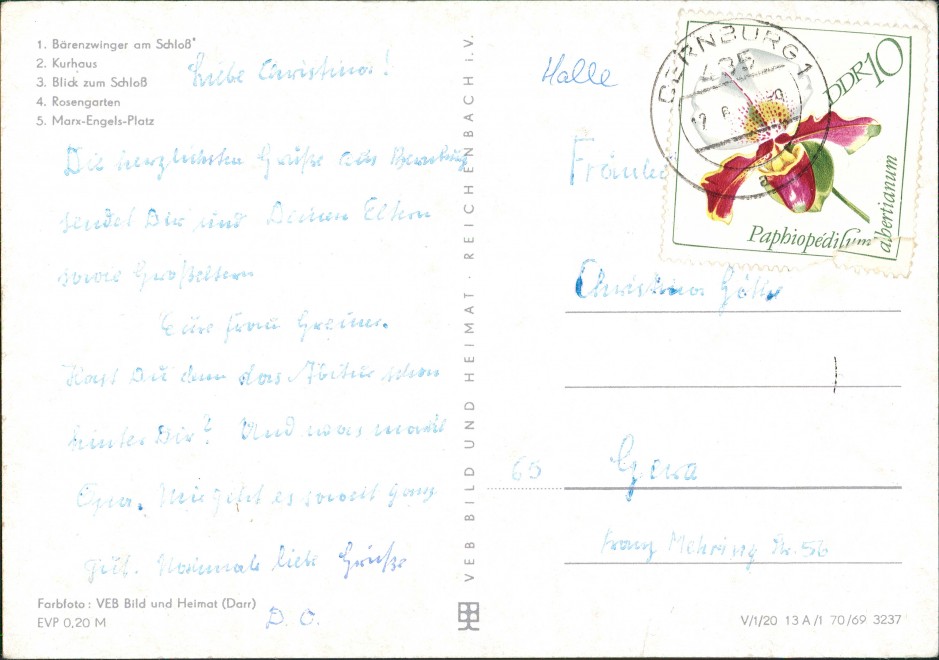 1. Bärenzwinger am Schloß
2. Kurhaus
3. Blick zum Schloß
4. Rosengarten
5. Marx-Engels-Platz
Liebe Christina!
Die herzlichsten Grüße aus Bernburg
sendet Dir und Deinen Eltern
sowie Großeltern
Eure Frau
Hast Du denn das Abitur schon
hinter Dir? Und was macht
Opa. Mir geht es soweit ganz
gut. Nochmals liebe Grüße
D. O.
Farbfoto: VEB Bild und Heimat (Darr)
EVP 0,20 M
VEB BILD UND HEIMAT · REICHENBACH i. V.
Halle
BERNBURG 1
435
DDR 10
Paphiopédilum
albertianum
Fräulein
Christina
65 Gera
Franz Mehring Str. 56
V/1/20 13 A/1 70/69 3237